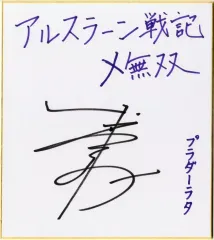 アルスラーン戦記
メ無双
プラダーラタ